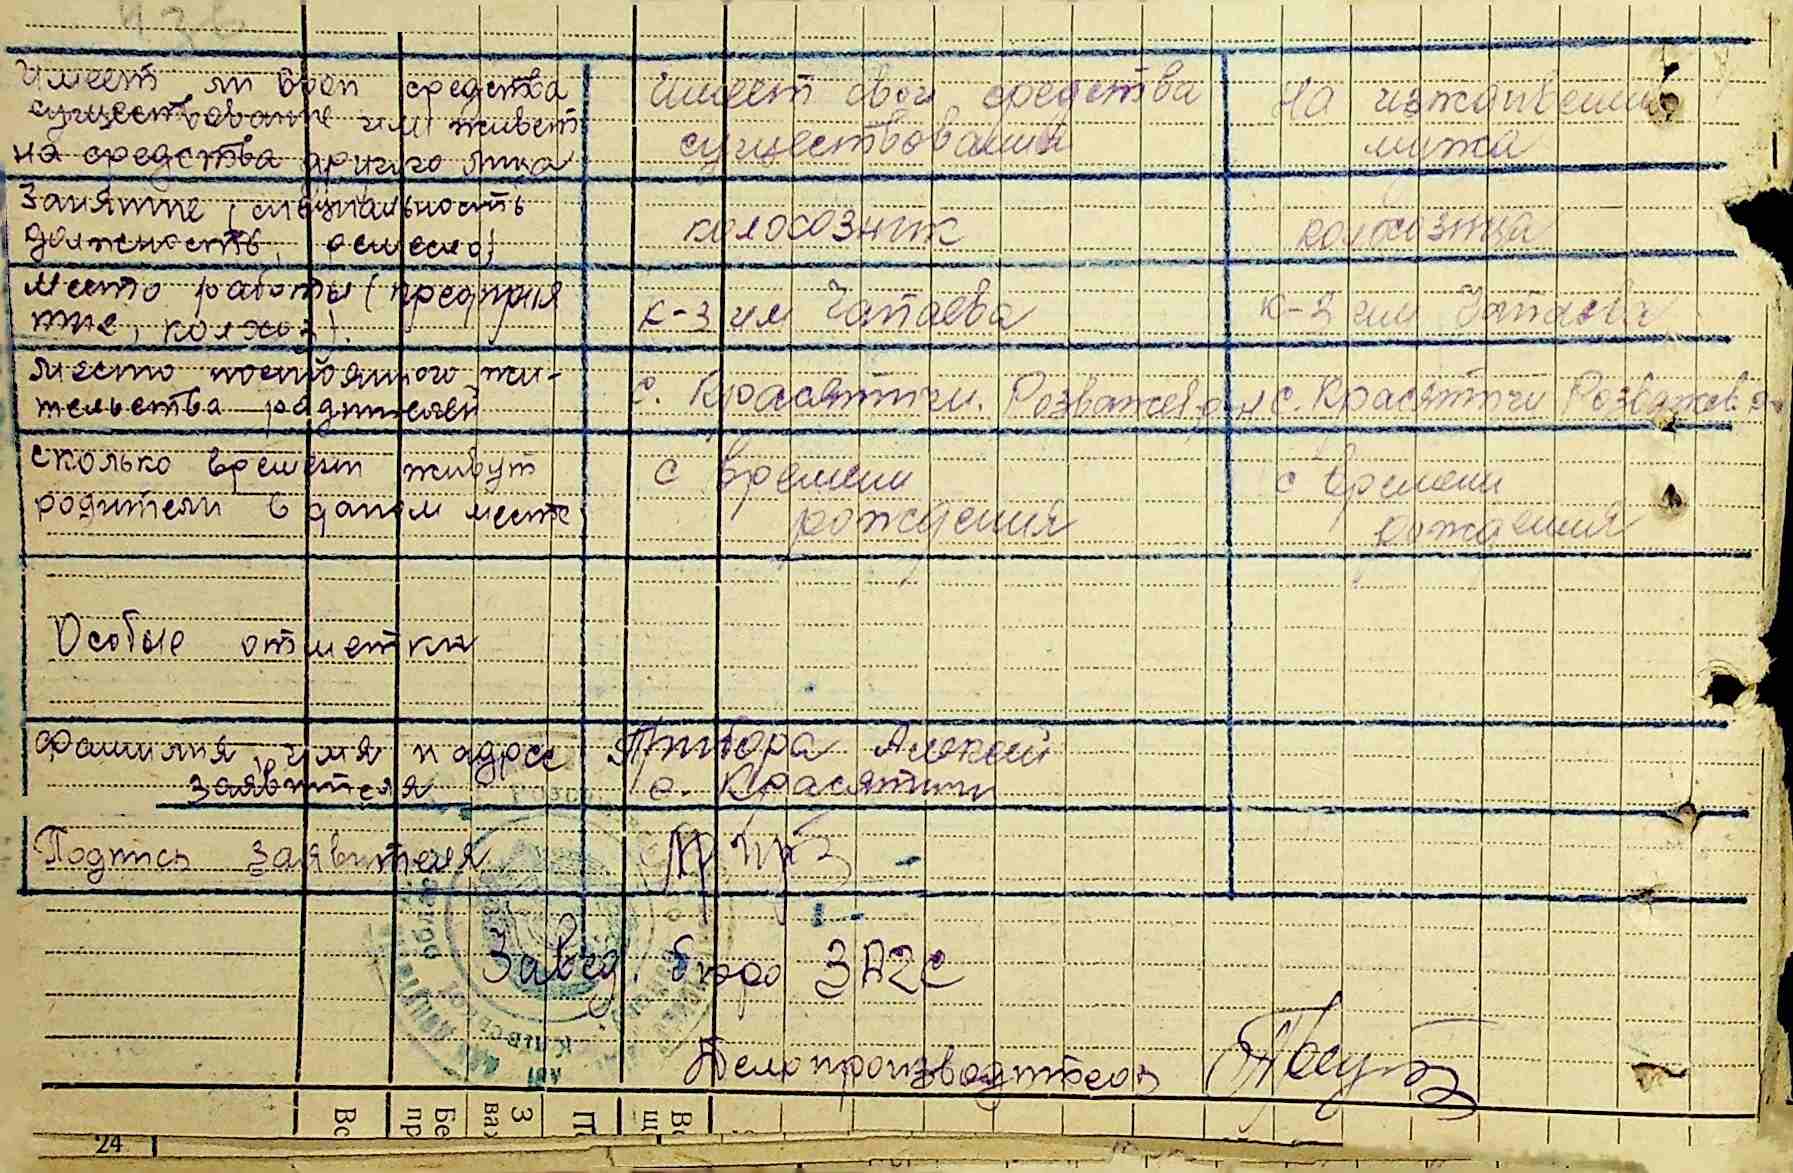 Имеет ли свои средства
существование или живет
на средства другого лица
Имеет свои средства
существования
На иждивении
мужа
Занятие, специальность
должность, ремесло)
колхозник
колхозница
Место работы (предприя
тие, колхоз).
к-з им Чапаева
к-з им Чапаева
Место постоянного жи-
тельства родителей
с. Красятичи. Розважев. р-н
с. Красятичи Розважев. р-
Сколько времени живут
родители в даном месте
с времени
рождения
с времени
рождения
Особые отметки
Фамилия, имя и адрес
заявителя
Алексей
с. Красятичи
Подпись заявителя
Завед. бюро ЗАГС
Делопроизводитель
24